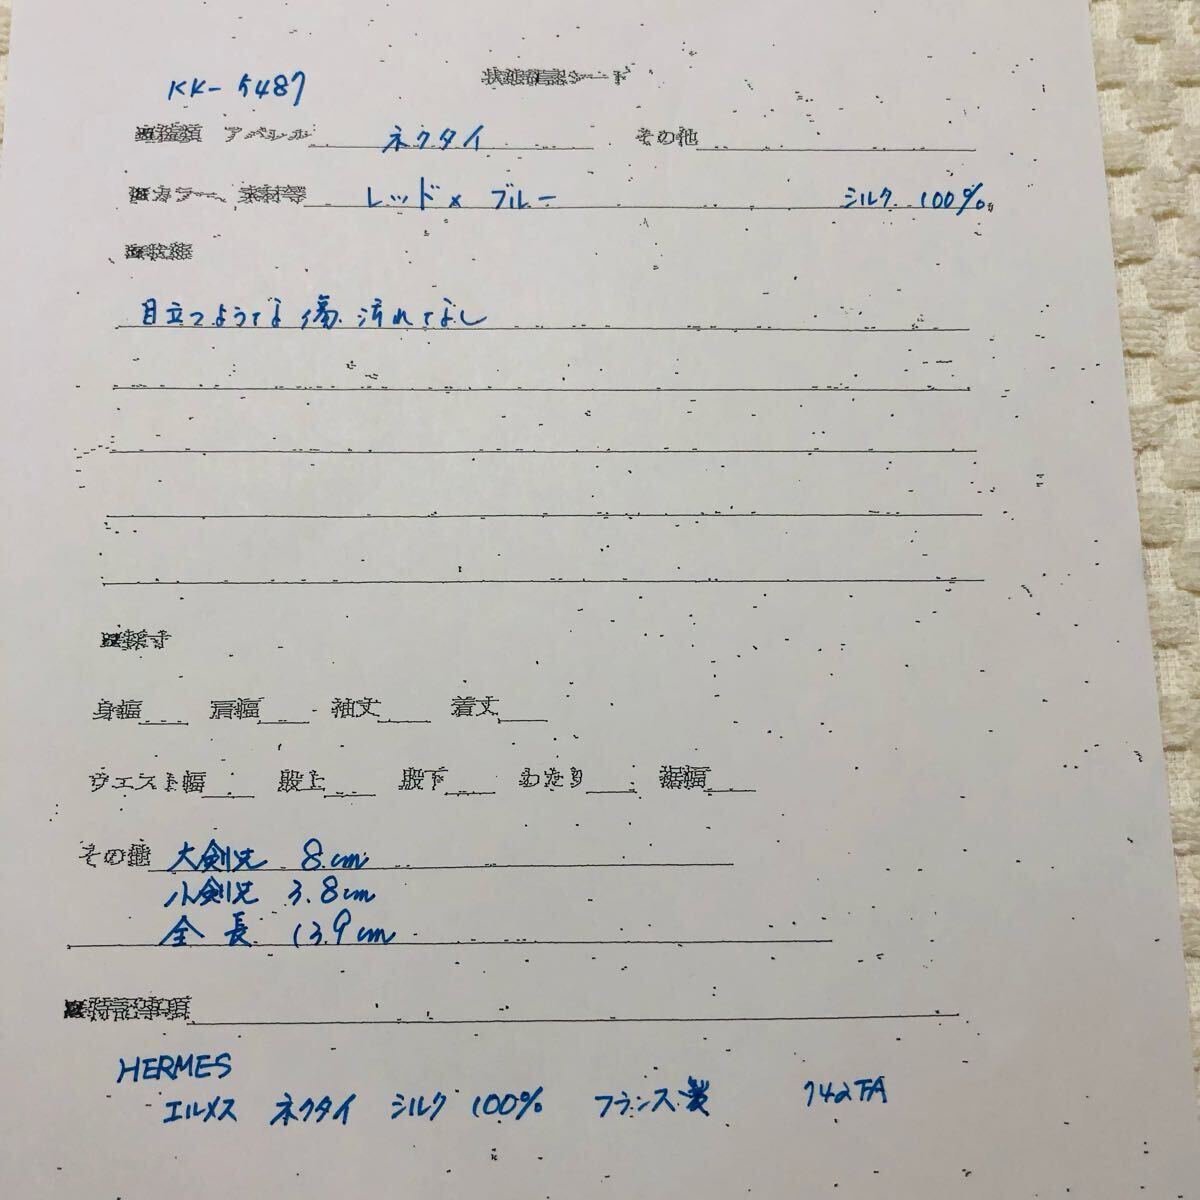 状態確認シート
KK-5487
アパレル ネクタイ その他
カラー、素材等 レッド×ブルー シルク 100%
状態
目立つような傷、汚れてなし
採寸
身幅 肩幅 袖丈 着丈
ウエスト幅 股上 股下 わたり 裾幅
その他 大剣先 8cm
小剣先 3.8cm
全長 139cm
特記事項
HERMES
エルメス ネクタイ シルク 100% フランス製 742TA